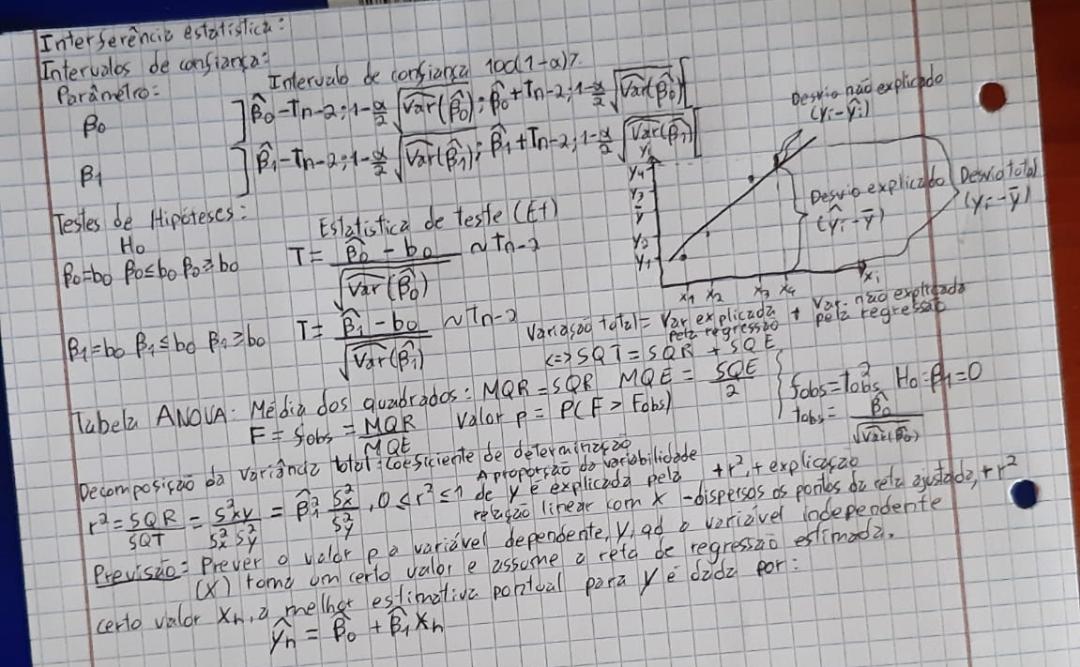 Interferência estatística:
Intervalos de confiança:
Parâmetro: Intervalo de confiança 100(1-α)%
β0 ]β̂0-Tn-2;1-α/2 √Var̂(β̂0); β̂0+Tn-2;1-α/2 √Var̂(β̂0)[
β1 ]β̂1-Tn-2;1-α/2 √Var̂(β̂1); β̂1+Tn-2;1-α/2 √Var̂(β̂1)[
Desvio não explicado
(yi-ŷi)
Yi
Y4
Y3
ȳ
Y2
Y1
x1 x2 x3 x4 xi
Desvio explicado
(ŷi-ȳ)
Desvio total
(yi-ȳ)
Testes de Hipóteses:
H0 Estatística de teste (Et)
β0=b0 β0≤b0 β0≥b0 T= β̂0-b0 / √Var̂(β̂0) ~Tn-2
β1=b0 β1≤b0 β1≥b0 T= β̂1-b0 / √Var̂(β̂1) ~Tn-2
Variação total= Var explicada pela regressão + Var. não explicada pela regressão
<=>SQT=SQR+SQE
Tabela ANOVA: Média dos quadrados: MQR=SQR MQE= SQE/2
F=fobs= MQR/MQE Valor p= P(F>Fobs)
fobs=t²obs H0:β1=0
tobs= β̂0/√Var̂(β̂0)
Decomposição da variância total: Coeficiente de determinação
r²= SQR/SQT = S²xy/S²x S²y = β̂1² S²x/S²y, 0≤r²≤1
A proporção da variabilidade
de y é explicada pela
relação linear com x
+r², + explicação
-dispersos os pontos da reta ajustada, +r²
Previsão: Prever o valor p a variável dependente, Y, qd a variável independente
(X) toma um certo valor e assume a reta de regressão estimada.
certo valor xn, a melhor estimativa pontual para y é dada por:
ŷn = β̂0 + β̂1xn